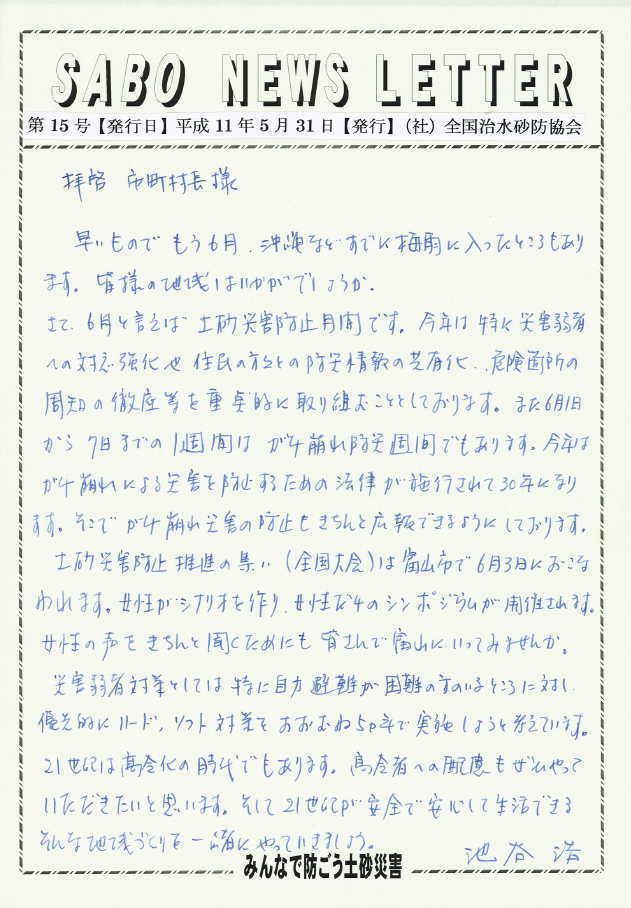 SABO NEWS LETTER
第 15 号【発行日】平成 11 年 5 月 31 日【発行】（社）全国治水砂防協会
拝啓 市町村長様
早いもので もう6月. 沖縄などすでに梅雨に入ったところもあり
ます。皆様の地域はいかがでしょうか.
さて、6月と言えば 土砂災害防止月間です。今年は 特に 災害弱者
への対応強化や 住民の方々との防災情報の共有化. . 危険箇所の
周知の徹底等を重点的に取り組むこととしております。また6月1日
から 7日までの1週間は がけ崩れ防災週間でもあります。今年は
がけ崩れによる災害を防止するための法律が施行されて30年になり
ます。そこで がけ崩れ災害の防止もきちんと広報できるように しております。
土砂災害防止推進の集い（全国大会）は富山市で6月3日におこな
われます。女性がシナリオを作り. 女性だけのシンポジウムが開催されます。
女性の声をきちんと聞くためにも 皆さんで富山にいってみませんか。
災害弱者対策としては 特に自力避難が困難の方のいるところに対し.
優先的にハード, ソフト対策をおおむね5ヶ年で実施しようと考えています。
21世紀は高令化の時代でもあります。高令者への配慮もぜひやって
いただきたいと思います。そして21世紀が安全で安心して生活できる
そんな地域づくりを一緒にやっていきましょう。
池谷 浩
みんなで防ごう土砂災害